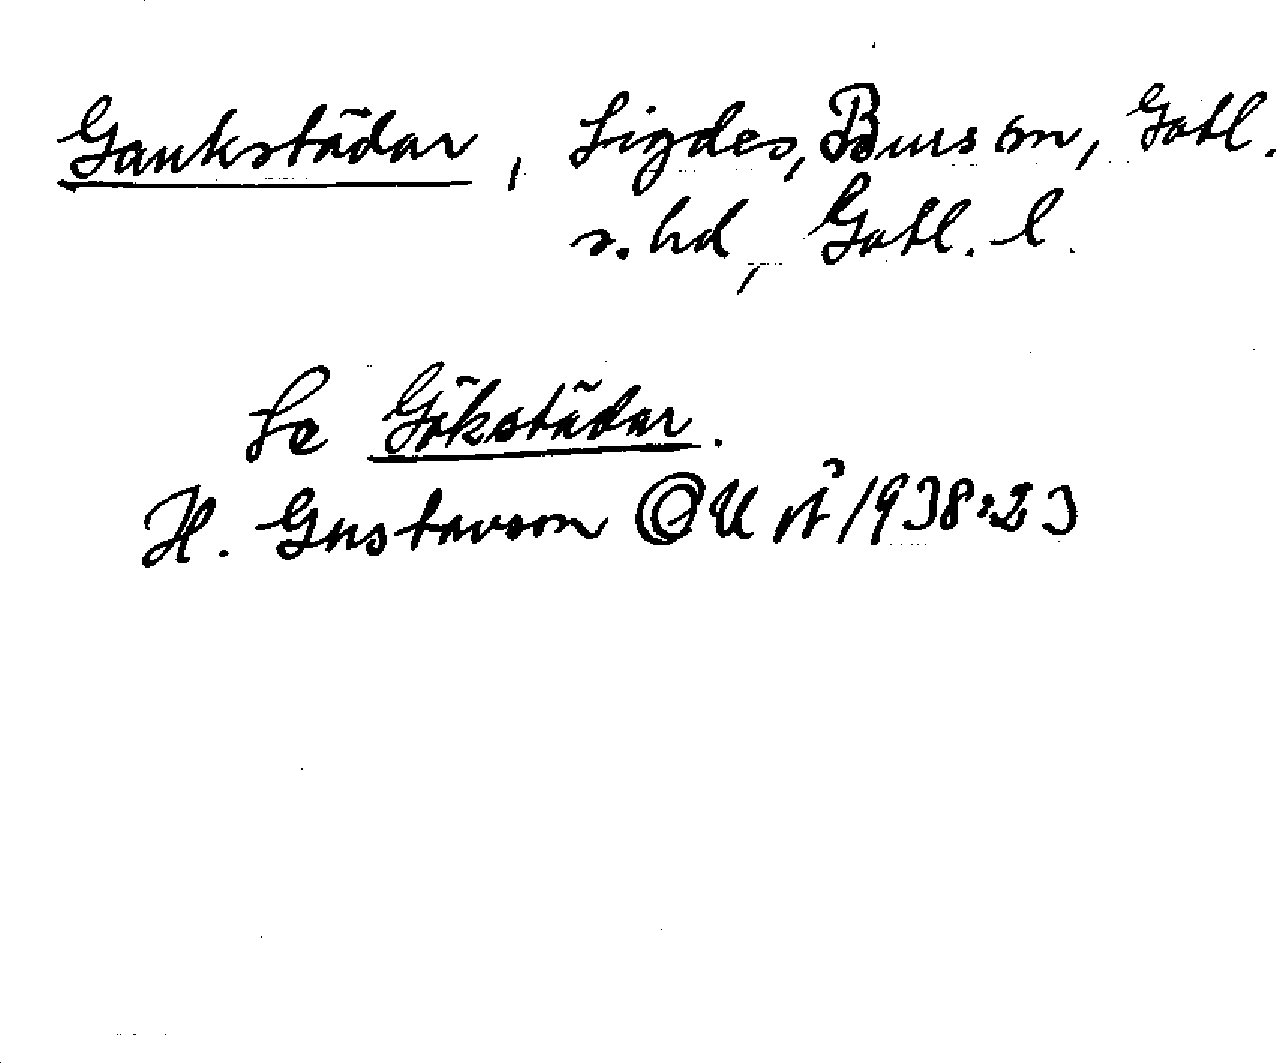 Gaukstädar, Sigdes, Burs sn, Gotl.
s. hd, Gotl. l.
Se Gökstädar.
H. Gustavson OUÅ 1938:23